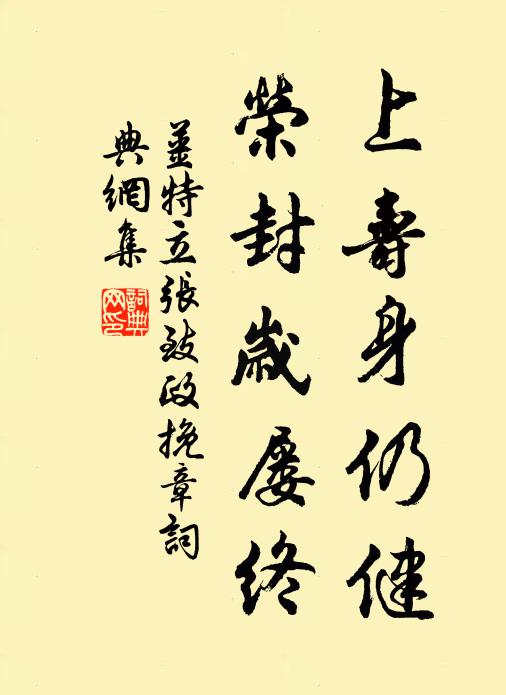 上壽身仍健
榮封歲屡終
姜特立張致政挽章詞
典網集
詞典網印